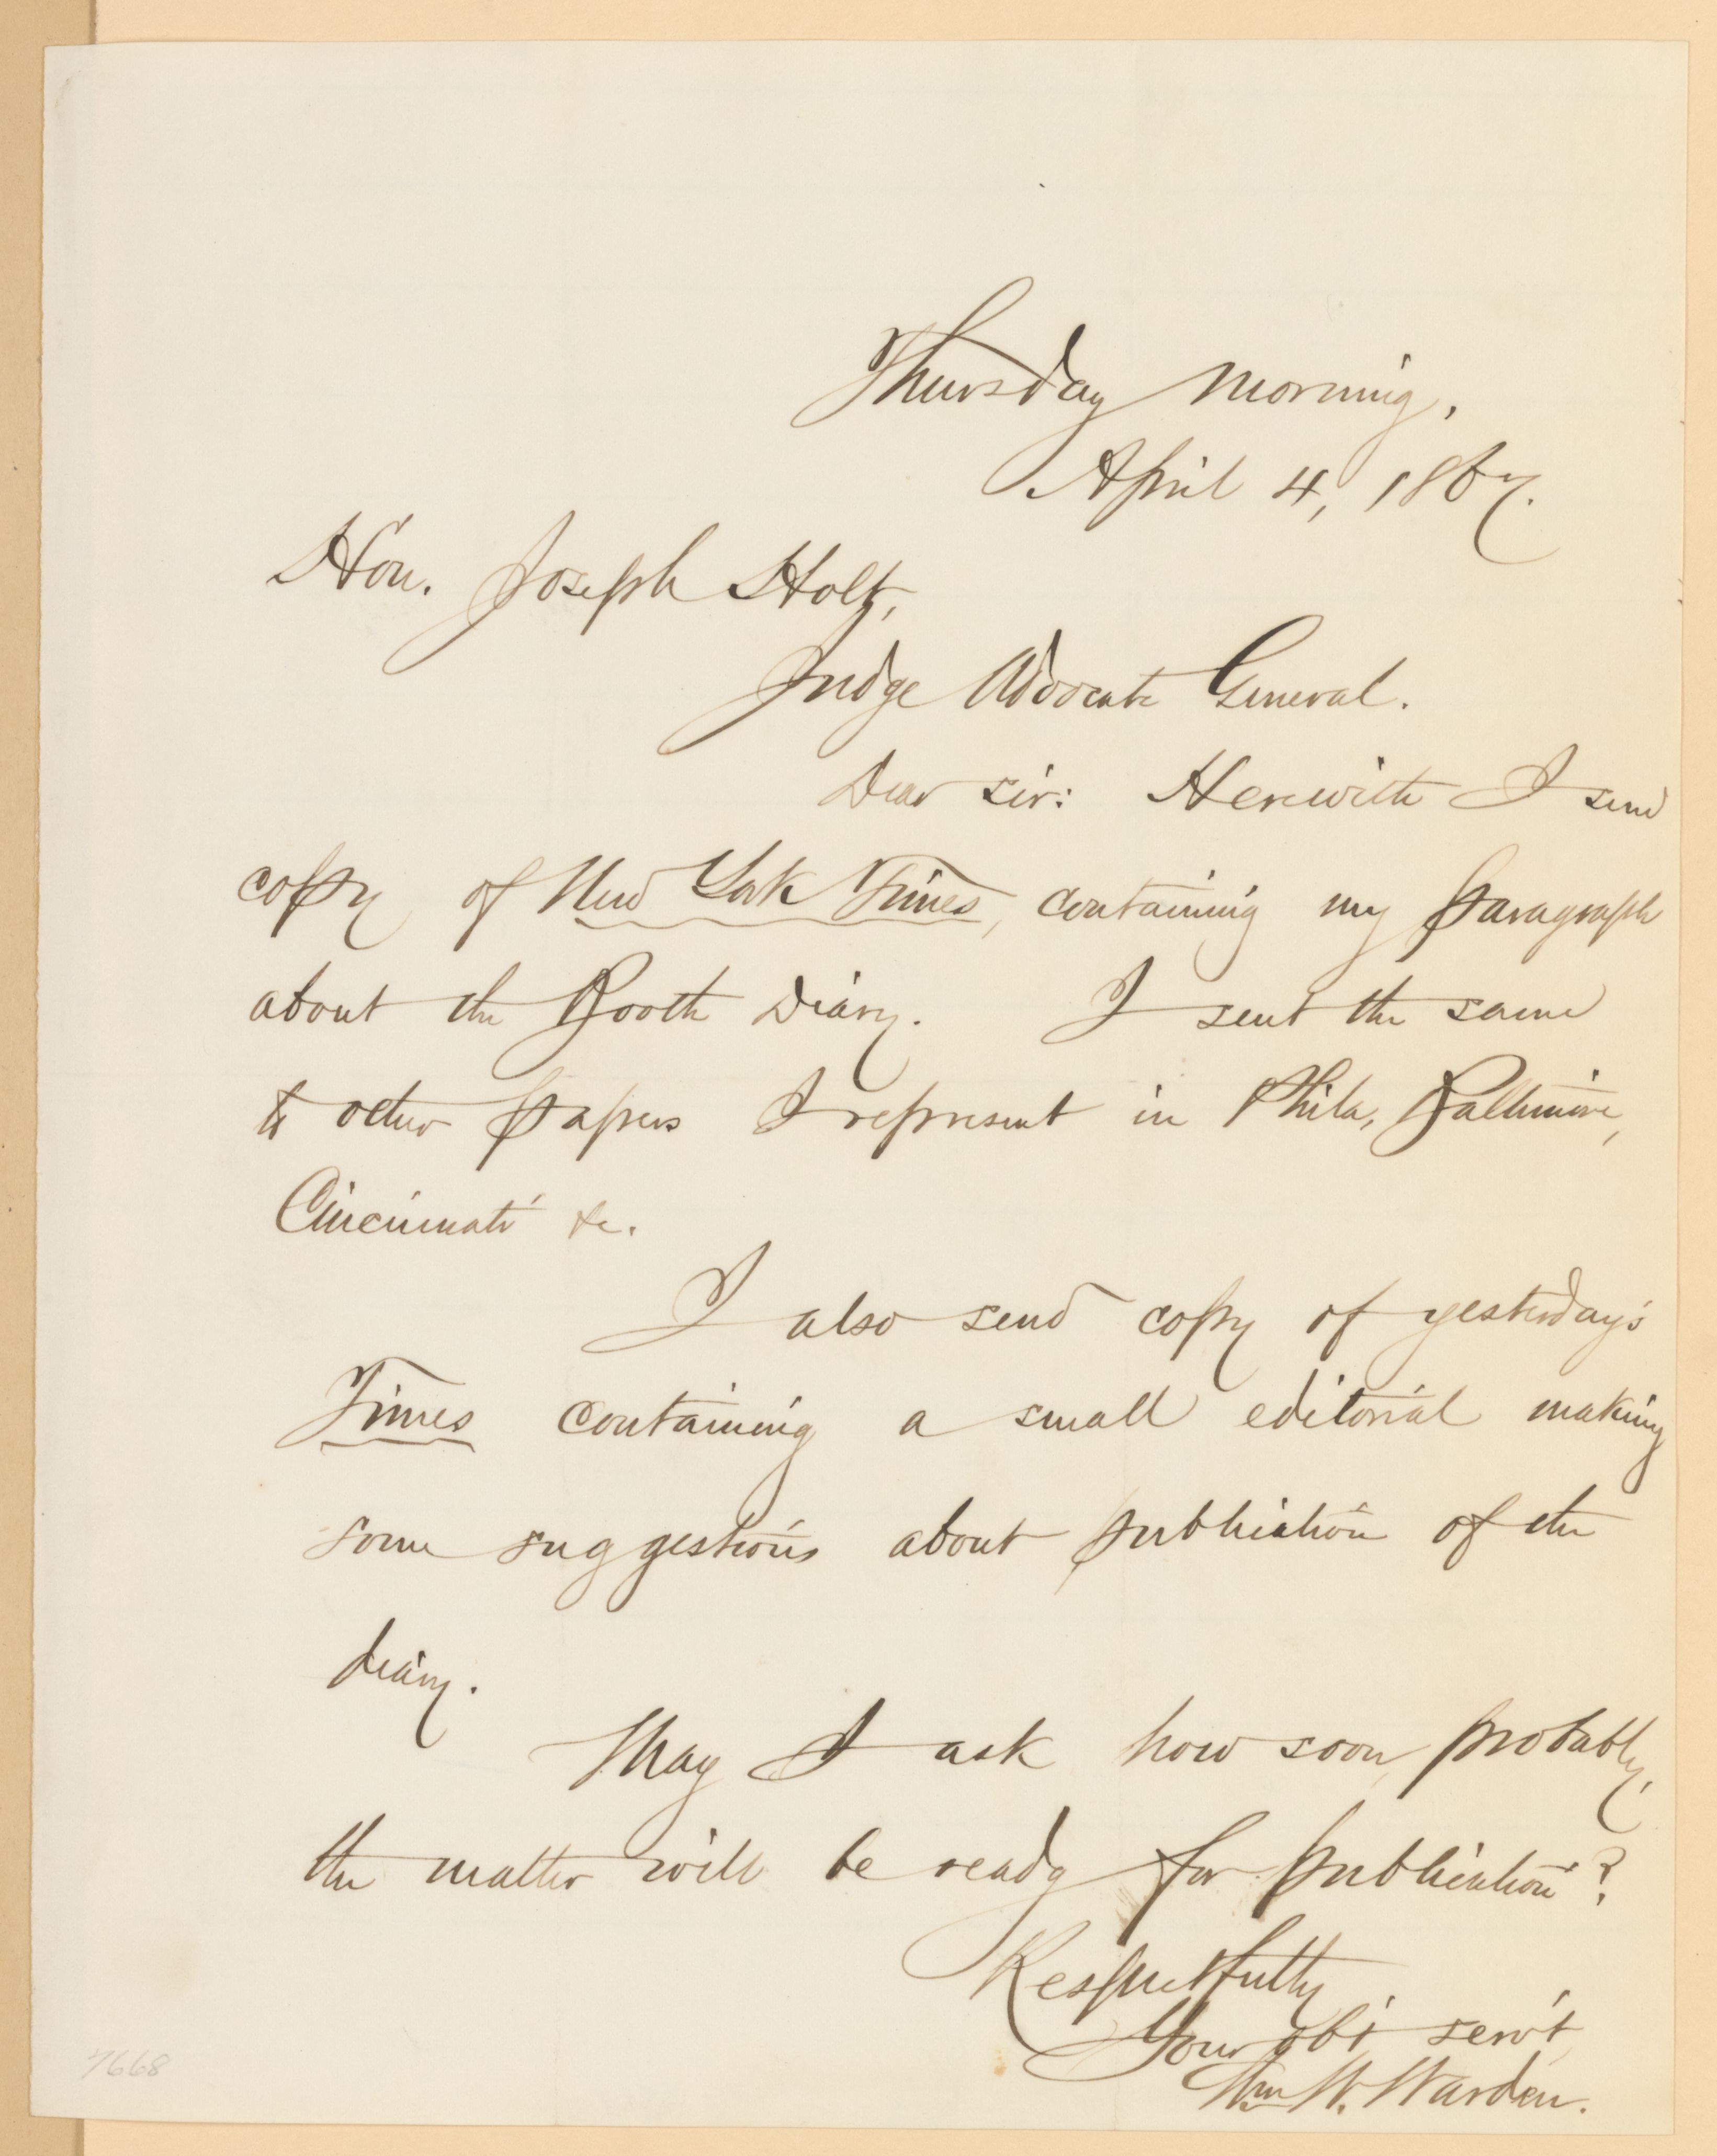 Thursday Morning,
April 4, 1867.
Hon. Joseph Holt,
Judge Advocate General.
Dear sir: Herewith I send
copy of New York Times, containing my paragraph
about the Booth Diary. I sent the same
to other papers I represent in Phila, Baltimore,
Cincinnati &c.
I also send copy of yesterday's
Times containing a small editorial making
some suggestions about publication of the
diary.
May I ask how soon, probably,
the matter will be ready for publication?
Respectfully
Your obt servt
Wm W. Warden.
7668